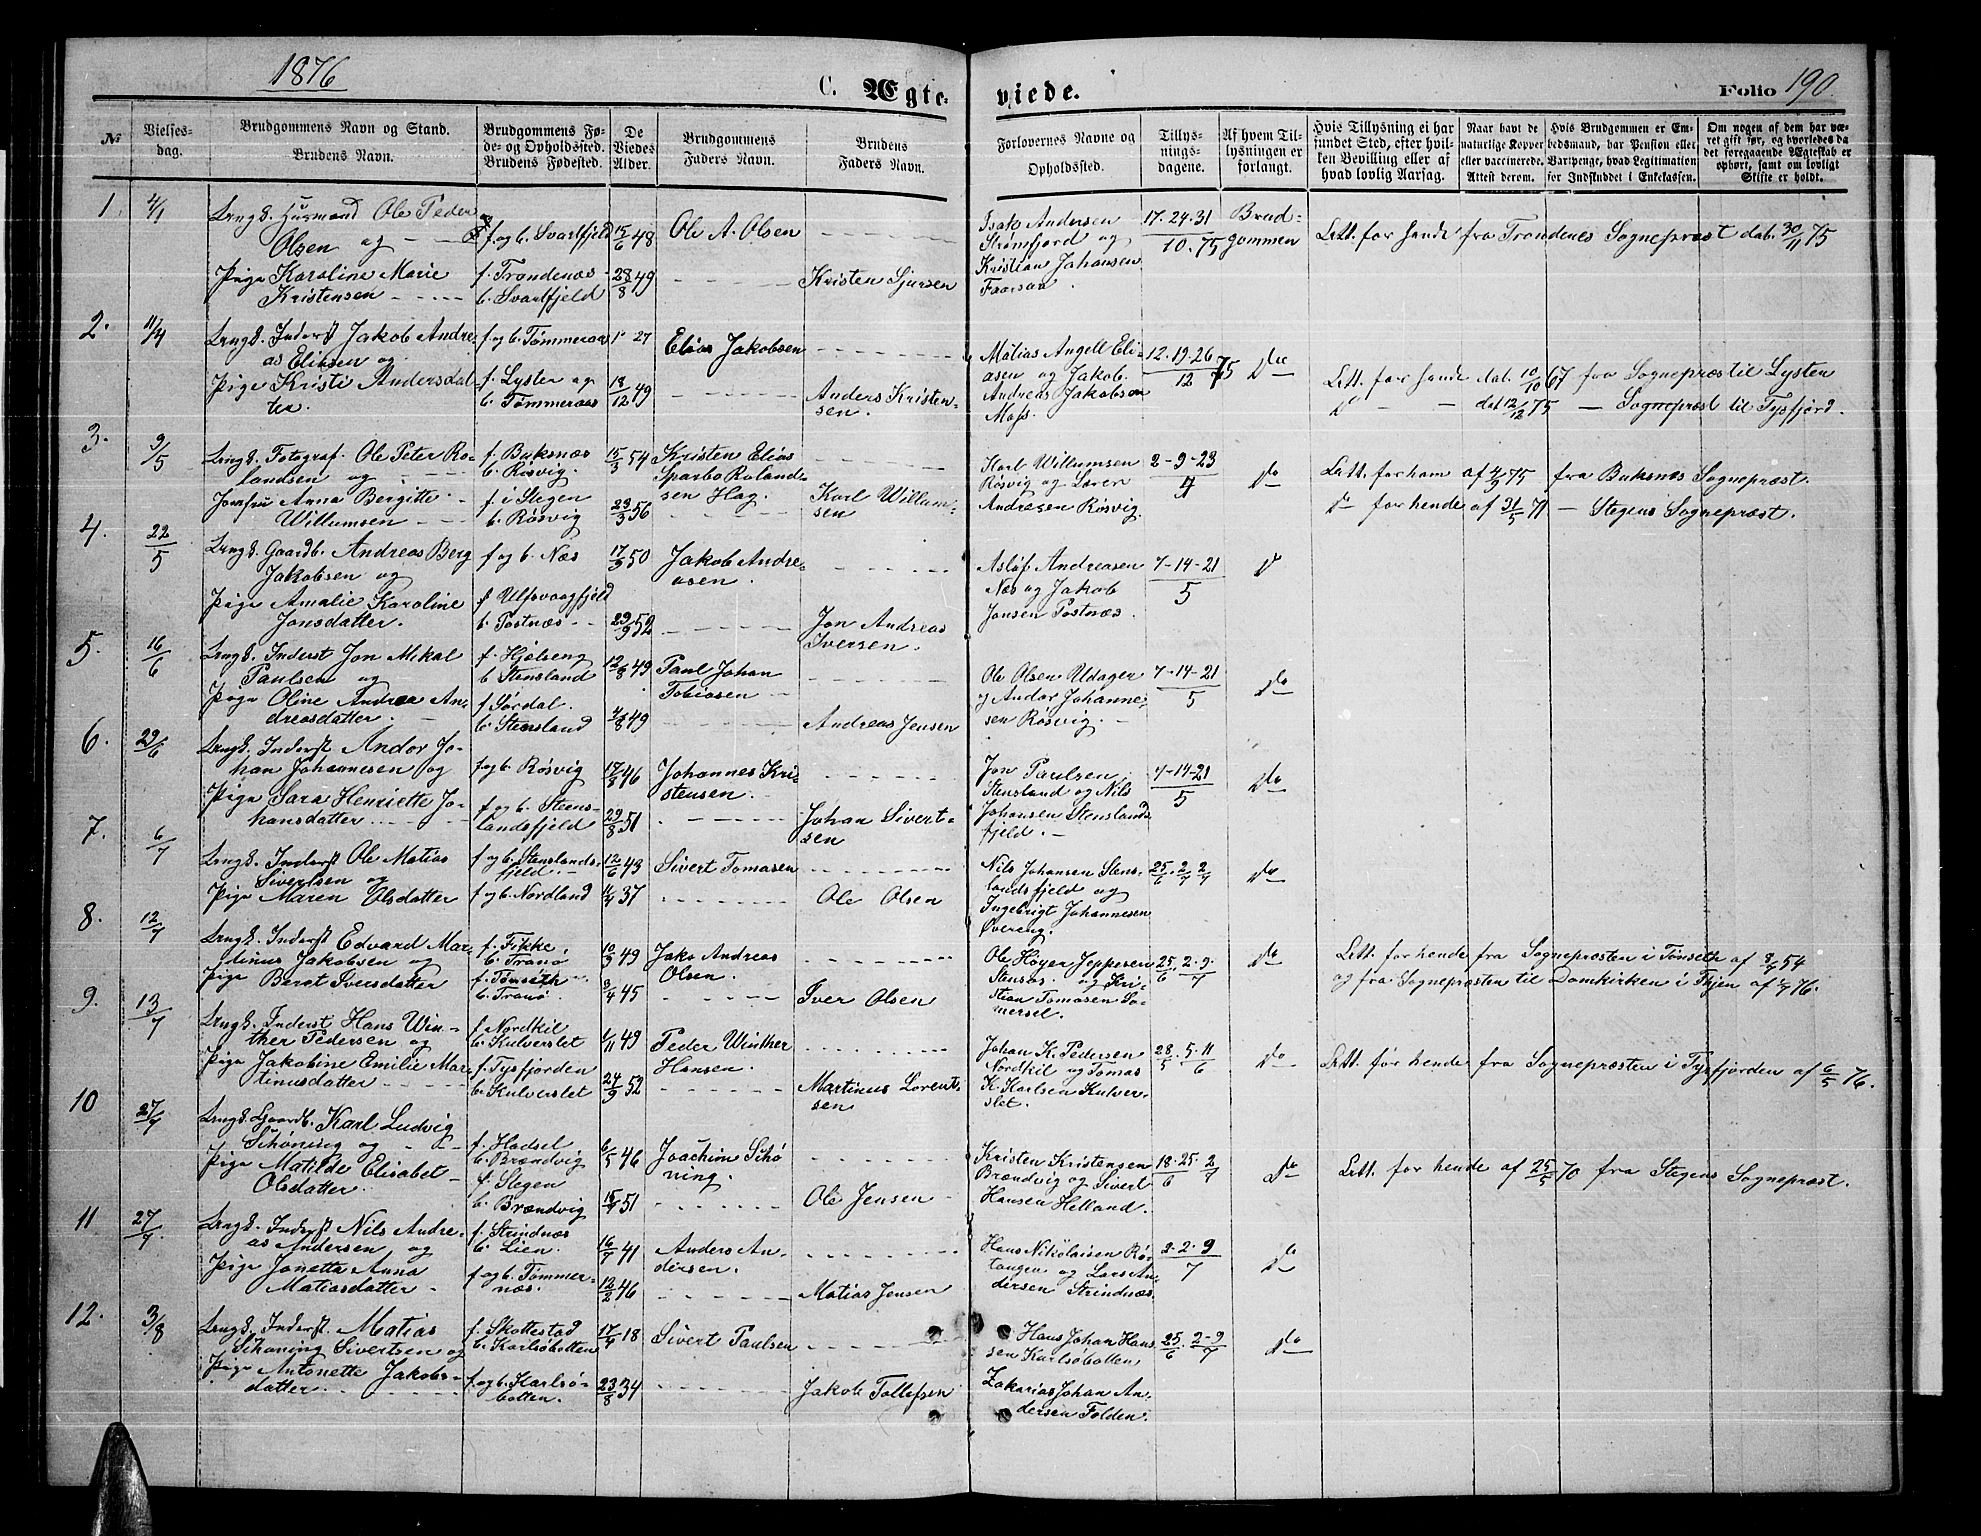 1876
C. Ægte-
viede.
Folio 190.
№
Vielses-
dag.
Brudgommens Navn og Stand.
Brudens Navn.
Brudgommens Fø-
de- og Opholdssted.
Brudens Fødested.
De
Viedes
Alder.
Brudgommens
Faders Navn.
Brudens
Faders Navn.
Forlovernes Navne og
Opholdssted.
Tillys-
nings-
dagene.
Af hvem Til-
lysningen er
forlangt.
Hvis Tillysning ei har
fundet Sted, efter hvil-
ken Bevilling eller af
hvad lovlig Aarsag.
Naar havt de
naturlige Kopper
eller vaccinerede.
Attest derom.
Hvis Brudgommen er Em-
bedsmand, har Pension eller
Vartpenge, hvad Legitimation
for Indskuddet i Enkekassen.
Om nogen af dem har væ-
ret gift før, og hvorledes da
det foregaaende Ægteskab er
ophørt, samt om lovligt
Skifte er holdt.
1. 4/1
Ungk. Husmand Ole Peder
Olsen og
f og b. Svartfjeld 15/6 48
Ole A. Olsen
Pige Karoline Marie
Kristensen
f. Trondenæs
b. Svartfjeld
28/8 49
Kristen Sjursen
Isak Andersen
Strømfjord og
Kristian Johansen
17. 24. 31
10. 75
Brud-
gommen
Lett. for hende fra Trondenes Sognepræst dat. 30/11 75
2. 11/4
Ungk. Inderst Jakob Andre-
as Eliasen og
f og b. Tømmeraas
27
Elias Jakobsen
Pige Kristi Andersdat
ter.
f. Lyster og
b. Tømmeraas
18/12 49
Anders Kristen-
sen.
Matias Angell Eli-
asen og Jakob
Andreas Jakobsen
12. 19. 26
12 75
Do
Lett. for hende dat. 10/10 67 fra Sognepræst til Lysten
Do dat 12/12 75 — Sognepræst til Tysfjord.
3. 9/5
Ungk. Fotograf. Ole Peter Ro-
landsen og
f. Buksnæs
b. Røsvig.
15/3 54
Kristen Elias
Sparbo Roland-
sen Hag.
Jomfru Anna Bergitte
Willumsen
f. i Stegen
b. Røsvig
23/3 56
Karl Willum-
sen
Karl Willumsen
Røsvig og Søren
Andresen Røsvig.
2-9-23
4
Do
Lett. for ham af 4/9 75 fra Buksnæs Sognepræst.
Do for hende af 31/5 71 — Stegens Sognepræst.
4. 22/5
Ungk. Gaardb. Andreas Berg
Jakobsen og
f og b. Næs
17/3 50
Jakob Andre-
asen.
Pige Amalie Karoline
Jonsdatter.
f. Ulfsvaagfjeld
b. Postnæs
29/9 52
Jon Andreas
Iversen.
Asløf Andreasen
Næs og Jakob
Jonsen Postnæs.
7-14-21
5
Do
5. 16/6
Ungk. Inderst Jon Mikal
Paulsen og
f. Hjelseng
b. Stensland
12/8 49
Paul Johan
Tobiasen
Pige Oline Andrea An-
dreasdatter.
f. Sørdal.
b. Stensland
4/8 49
Andreas Jensen
Ole Olsen Uldager
og Andor Johanne-
sen Røsvig.
7-14-21
5
Do
6. 29/6
Ungk. Inderst Andor Jo-
han Johannesen og
f og b. Røsvig
17/8 46
Johannes Kri-
stensen.
Pige Sara Henriette Jo-
hansdatter.
f og b. Steens-
landsfjeld
29/8 51
Johan Sivert-
sen
Jon Paulsen
Stensland og Nils
Johansen Stenslands
fjeld.
7-14-21
5
Do
7. 6/7
Ungk. Inderst Ole Matias
Sivertsen og
f og b. Stenslands-
fjeld.
12/6 43
Sivert Tomasen
Pige Maren Olsdatter
f og b. Nordland
37
Ole Olsen
Nils Johansen Stens-
landsfjeld og
Ingebrigt Johannesen
Øvereng.
25/6. 2/7
Do
8. 12/7
Ungk. Inderst Edvard Mar-
tinus Jakobsen og
f. Fikke.
b. Tranø
10/3 49
Jako Andreas
Olsen.
Pige Berat Iversdatter
f. Tønseth
b. Tranø.
3/4 45
Iver Olsen
Ole Høyer Jeppesen
Stensas. og Kri-
stian Tomasen So-
mersel.
25/6. 2. 9/7
Do
Lett. for hende fra Sognepræsten i Tønseth af 8/7 54
og fra Sognepræsten til Domkirken i Thjem af 4/7 76.
9. 13/7
Ungk. Inderst Hans Win-
ther Pedersen og
f. Nordkil
b. Kulverslet
1/11 49
Peder Winther
Hansen.
Pige Jakobine Emilie Mar-
tinusdatter
f. Tysfjorden
b. Kulverslet
24/9 52
Martinus Lorent-
sen
Johan K. Pedersen
Nordkil og Tomas
K. Karlsen Kulver-
slet.
28/5. 5. 11/6
Do
Lett. for hende fra Sognepræsten i Tysfjorden af 6/5 76.
10 27/7
Ungk. Gaardb. Karl Ludvig
Schøning og
f. Hadsel
b. Brændvig
6/5 46
Joachim Schø
ning.
Pige Matilde Elisabet
Olsdatter.
f. Stegen
b. Brændvig
51
Ole Jensen
Kristen Kristensen
Brændvig og Sivert
Hansen Helland.
18. 25/6. 2/7
Do
Lett. for hende af 25/5 70 fra Stegens Sognepræst.
11 27/7
Ungk. Inderst Nils Andre-
as Andersen og
f. Strindnæs
b. Lien.
16/7 41
Anders An-
dersen.
Pige Jonetta Anna
Matiasdatter
f og b. Tømmer-
næs.
12/2 46
Matias Jensen
Hans Nikolaisen Rø-
tangen og Lars An-
dersen Strindnæs.
2. 2. 9
7
Do
12. 3/8
Ungk. Inderst. Matias
Schøning Sivertsen og
f. Skottestad
b. Karlsøbotten
17/4 18
Sivert Paulsen
Pige Antonette Jakobs-
datter.
f og b. Karlsø-
botten.
23/8 34
Jakob Tollefsen
Hans Johan Han-
sen Karlsøbotten
Zakarias Johan An-
dersen Folden.
25/6. 2-9/7
Do